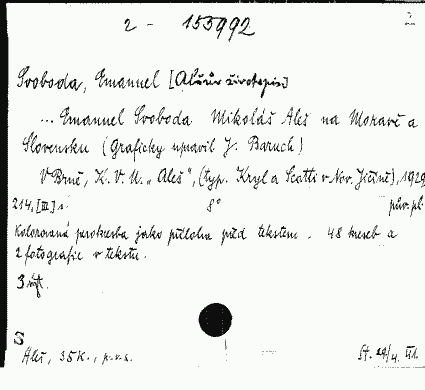 2 - 155992
Svoboda, Emanuel [Alšův životopis]
... Emanuel Svoboda Mikoláš Aleš na Moravě a
Slovensku (Graficky upravil J. Baruch)
V Brně, K. V. U. „Aleš", (typ. Kryl a Scotti v Nov. Jičíně), 1929
214, [III] s. 8° pův. pl.
Kolorovaná perokresba jako příloha před textem. 48 kreseb a
2 fotografie v textu.
S
Aleš, 35 K., p.v.s.
St. 29/4. VI.